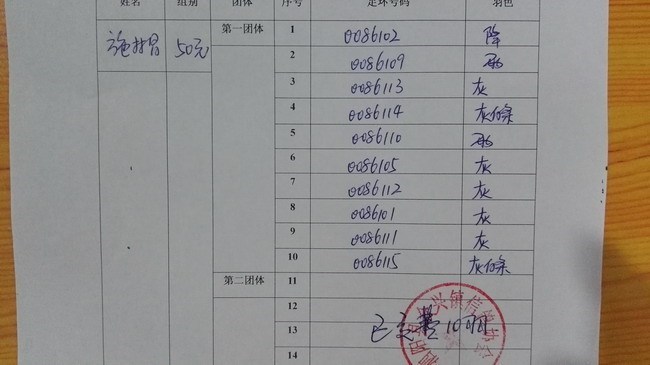 姓名 组别 团体 序号 足环号码 羽色
50元 第一团体 1 0086102 降
2 0086109 雨
3 0086113 灰
4 0086114 灰白条
5 0086110 雨
6 0086105 灰
7 0086112 灰
8 0086101 灰
9 0086111 灰
10 0086115 灰白条
第二团体 11
12
13 10羽
14